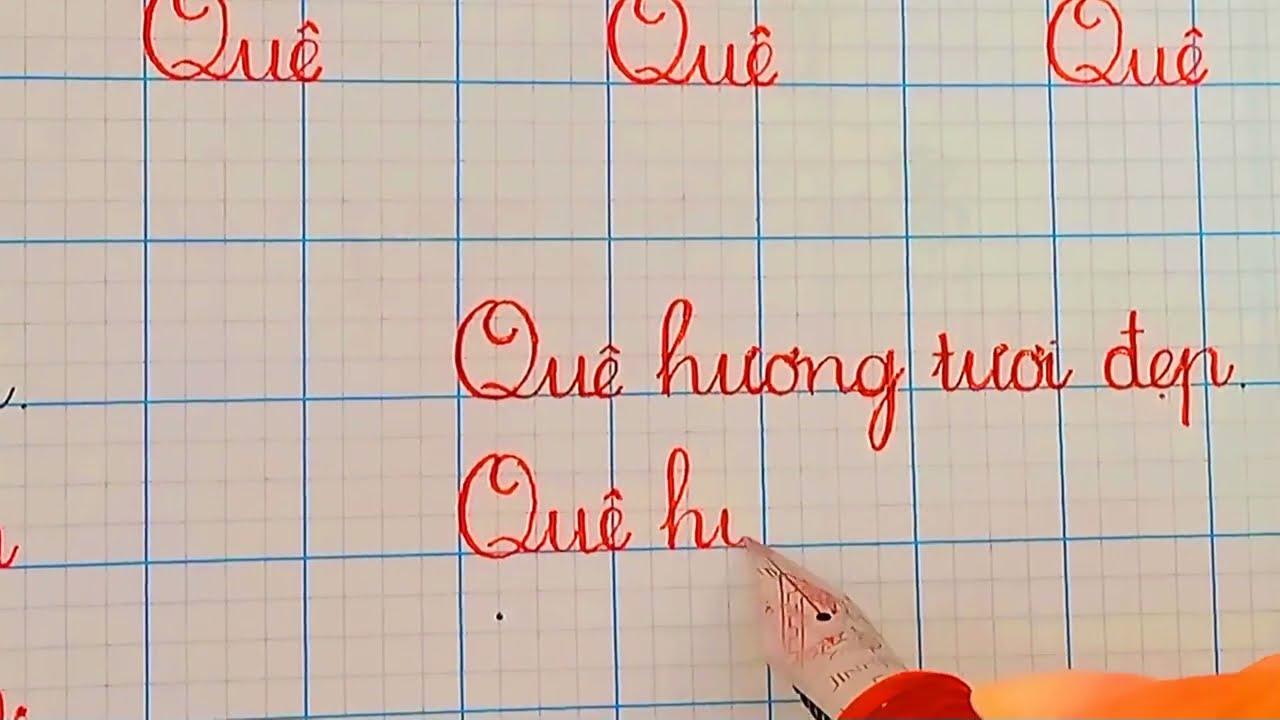 Quê Quê Quê
Quê hương tươi đẹp.
Quê hư